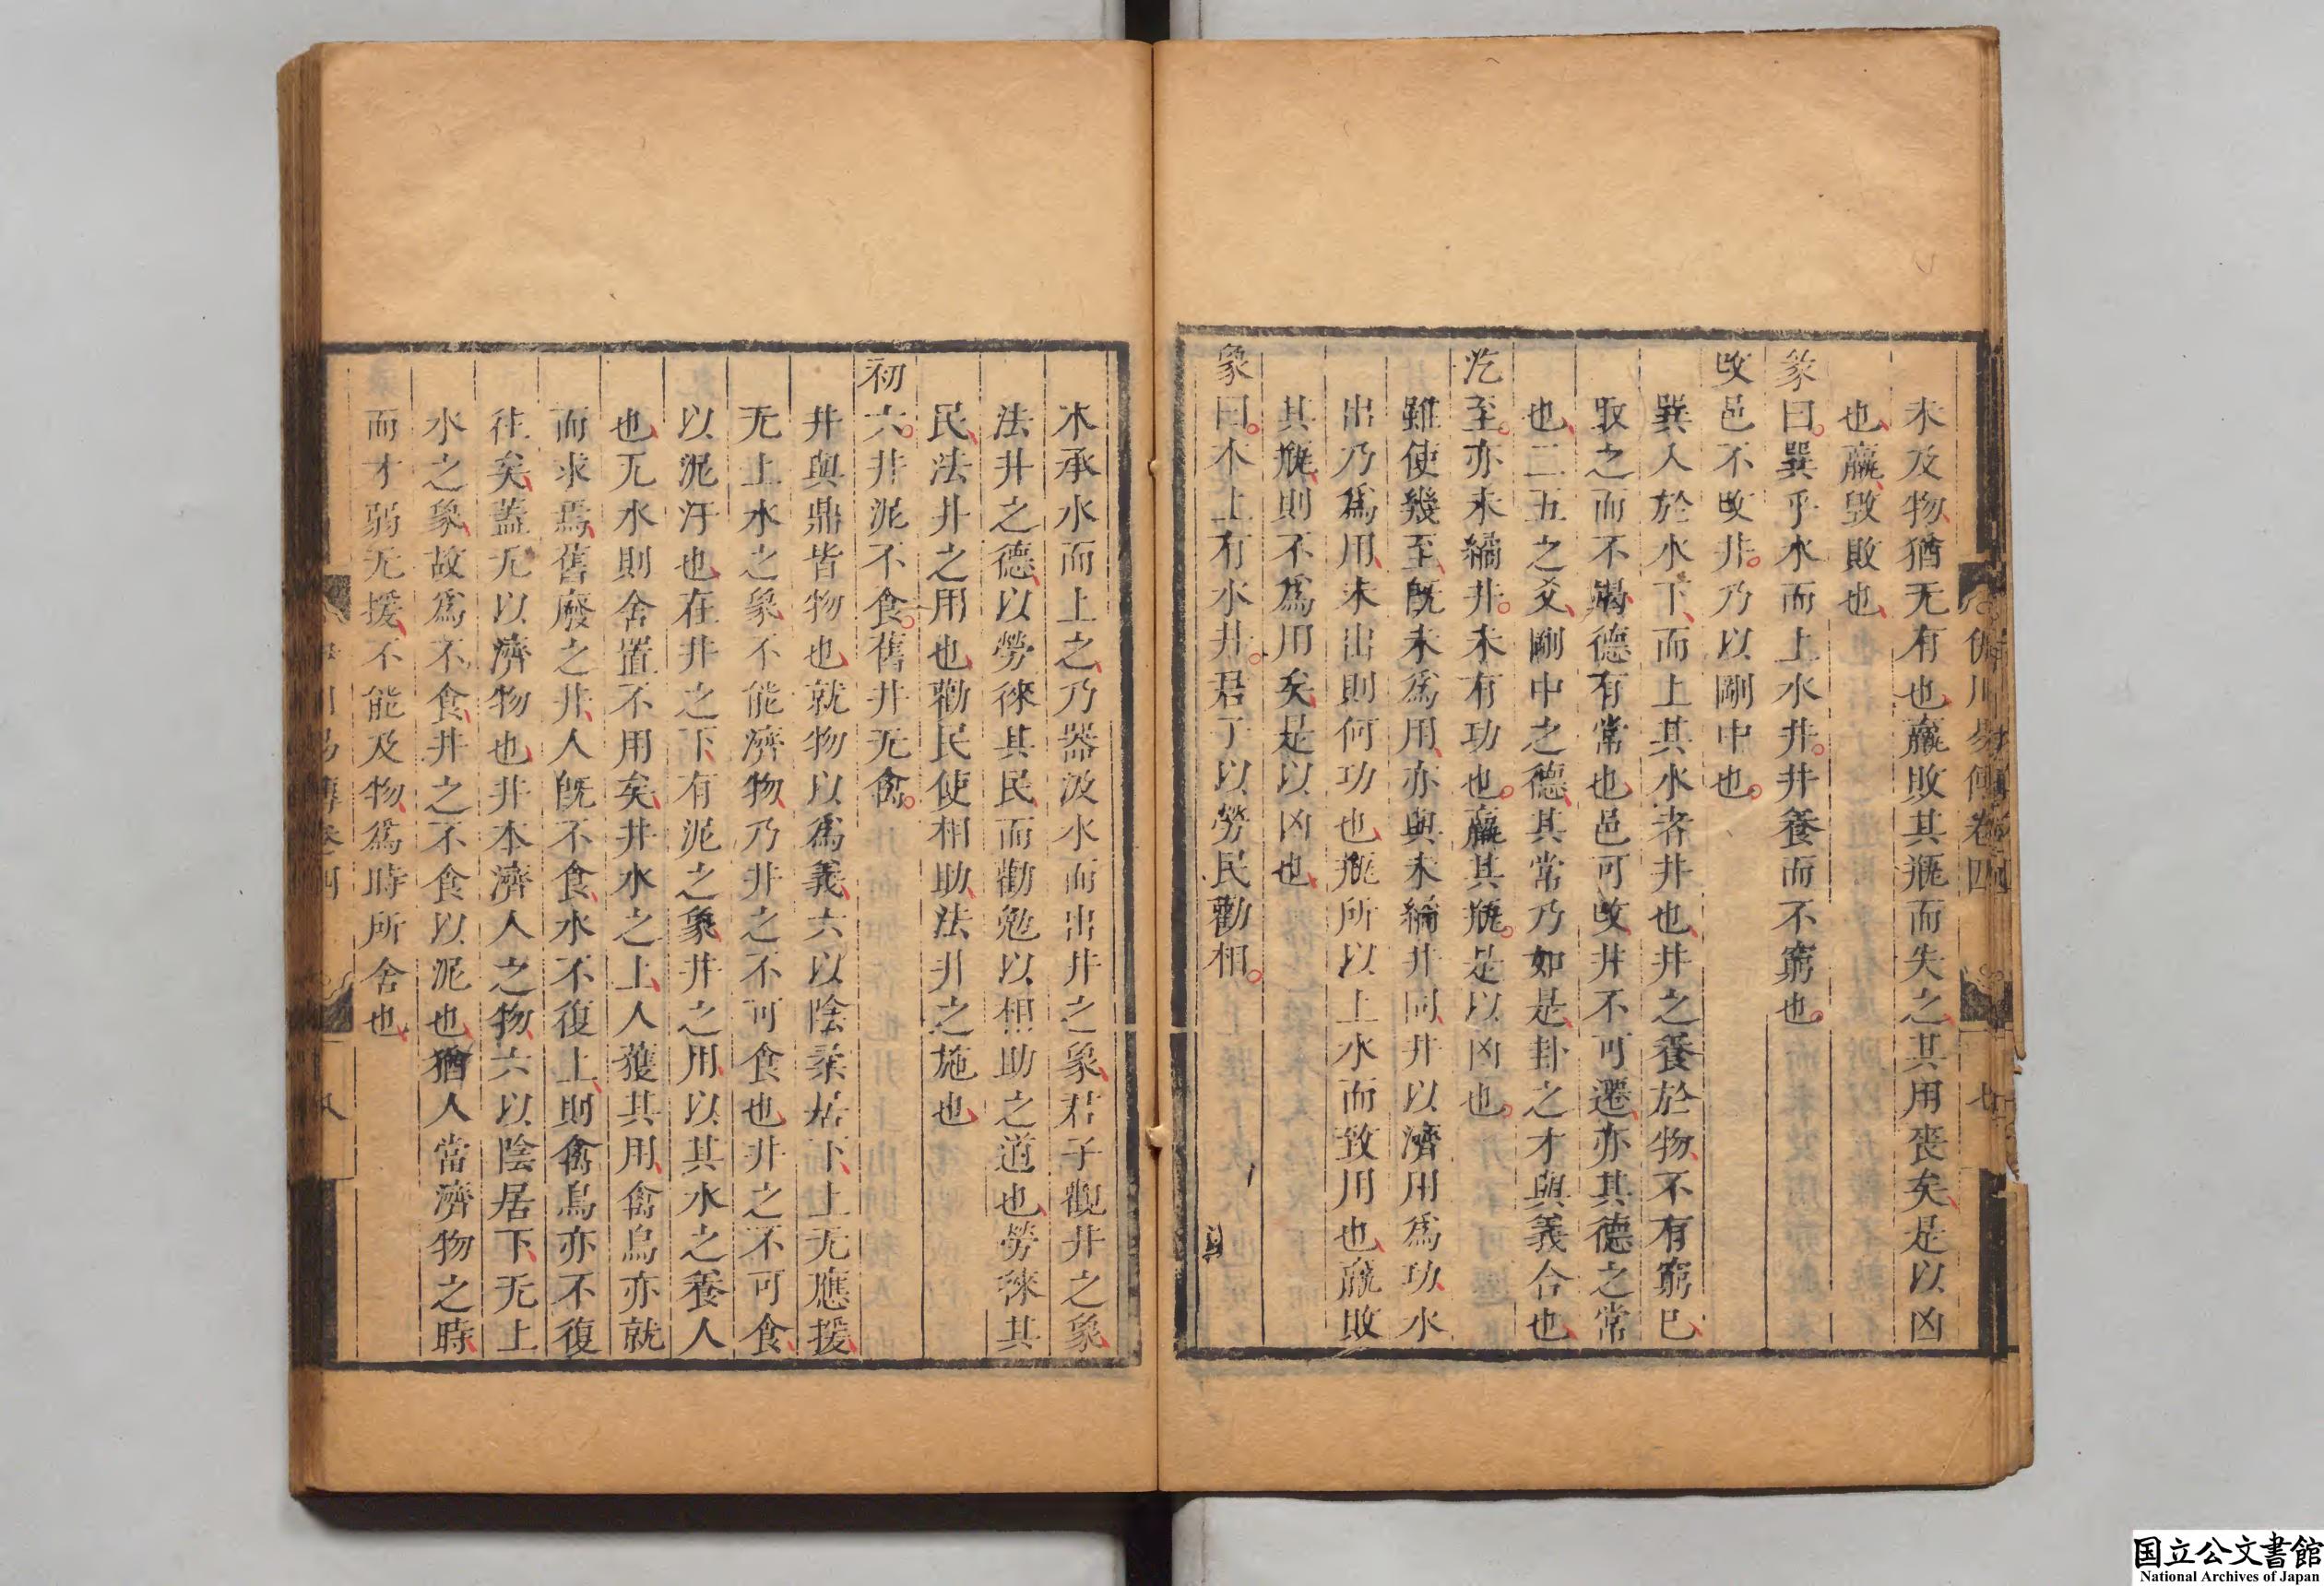 未及物猶无有也羸敗其瓶而失之其用喪矣是以凶
也羸毀敗也
彖曰巽乎水而上水井井養而不窮也
改邑不改井乃以剛中也
巽入於水下而上其水者井也井之養於物不有窮已
取之而不竭德有常也邑可改井不可遷亦其德之常
也二五之爻剛中之德其常乃如是卦之才與義合也
汔至亦未繘井未有功也羸其瓶是以凶也
雖使幾至既未爲用亦與未繘井同井以濟用爲功水
出乃爲用未出則何功也瓶所以上水而致用也羸敗
其瓶則不爲用矣是以凶也
象曰木上有水井君子以勞民勸相
木承水而上之乃器汲水而出井之象君子觀井之象
法井之德以勞徠其民而勸勉以相助之道也勞徠其
民法井之用也勸民使相助法井之施也
初六井泥不食舊井无禽
井與鼎皆物也就物以爲義六以陰柔居下上无應援
无上水之象不能濟物乃井之不可食也井之不可食
以泥汙也在井之下有泥之象井之用以其水之養人
也无水則舍置不用矣井水之上人獲其用禽鳥亦就
而求焉舊廢之井人既不食水不復上則禽鳥亦不復
往矣蓋无以濟物也井本濟人之物六以陰居下无上
水之象故爲不食井之不食以泥也猶人當濟物之時
而才弱无援不能及物爲時所舍也
伊川易傳卷四
七
八
国立公文書館
National Archives of Japan